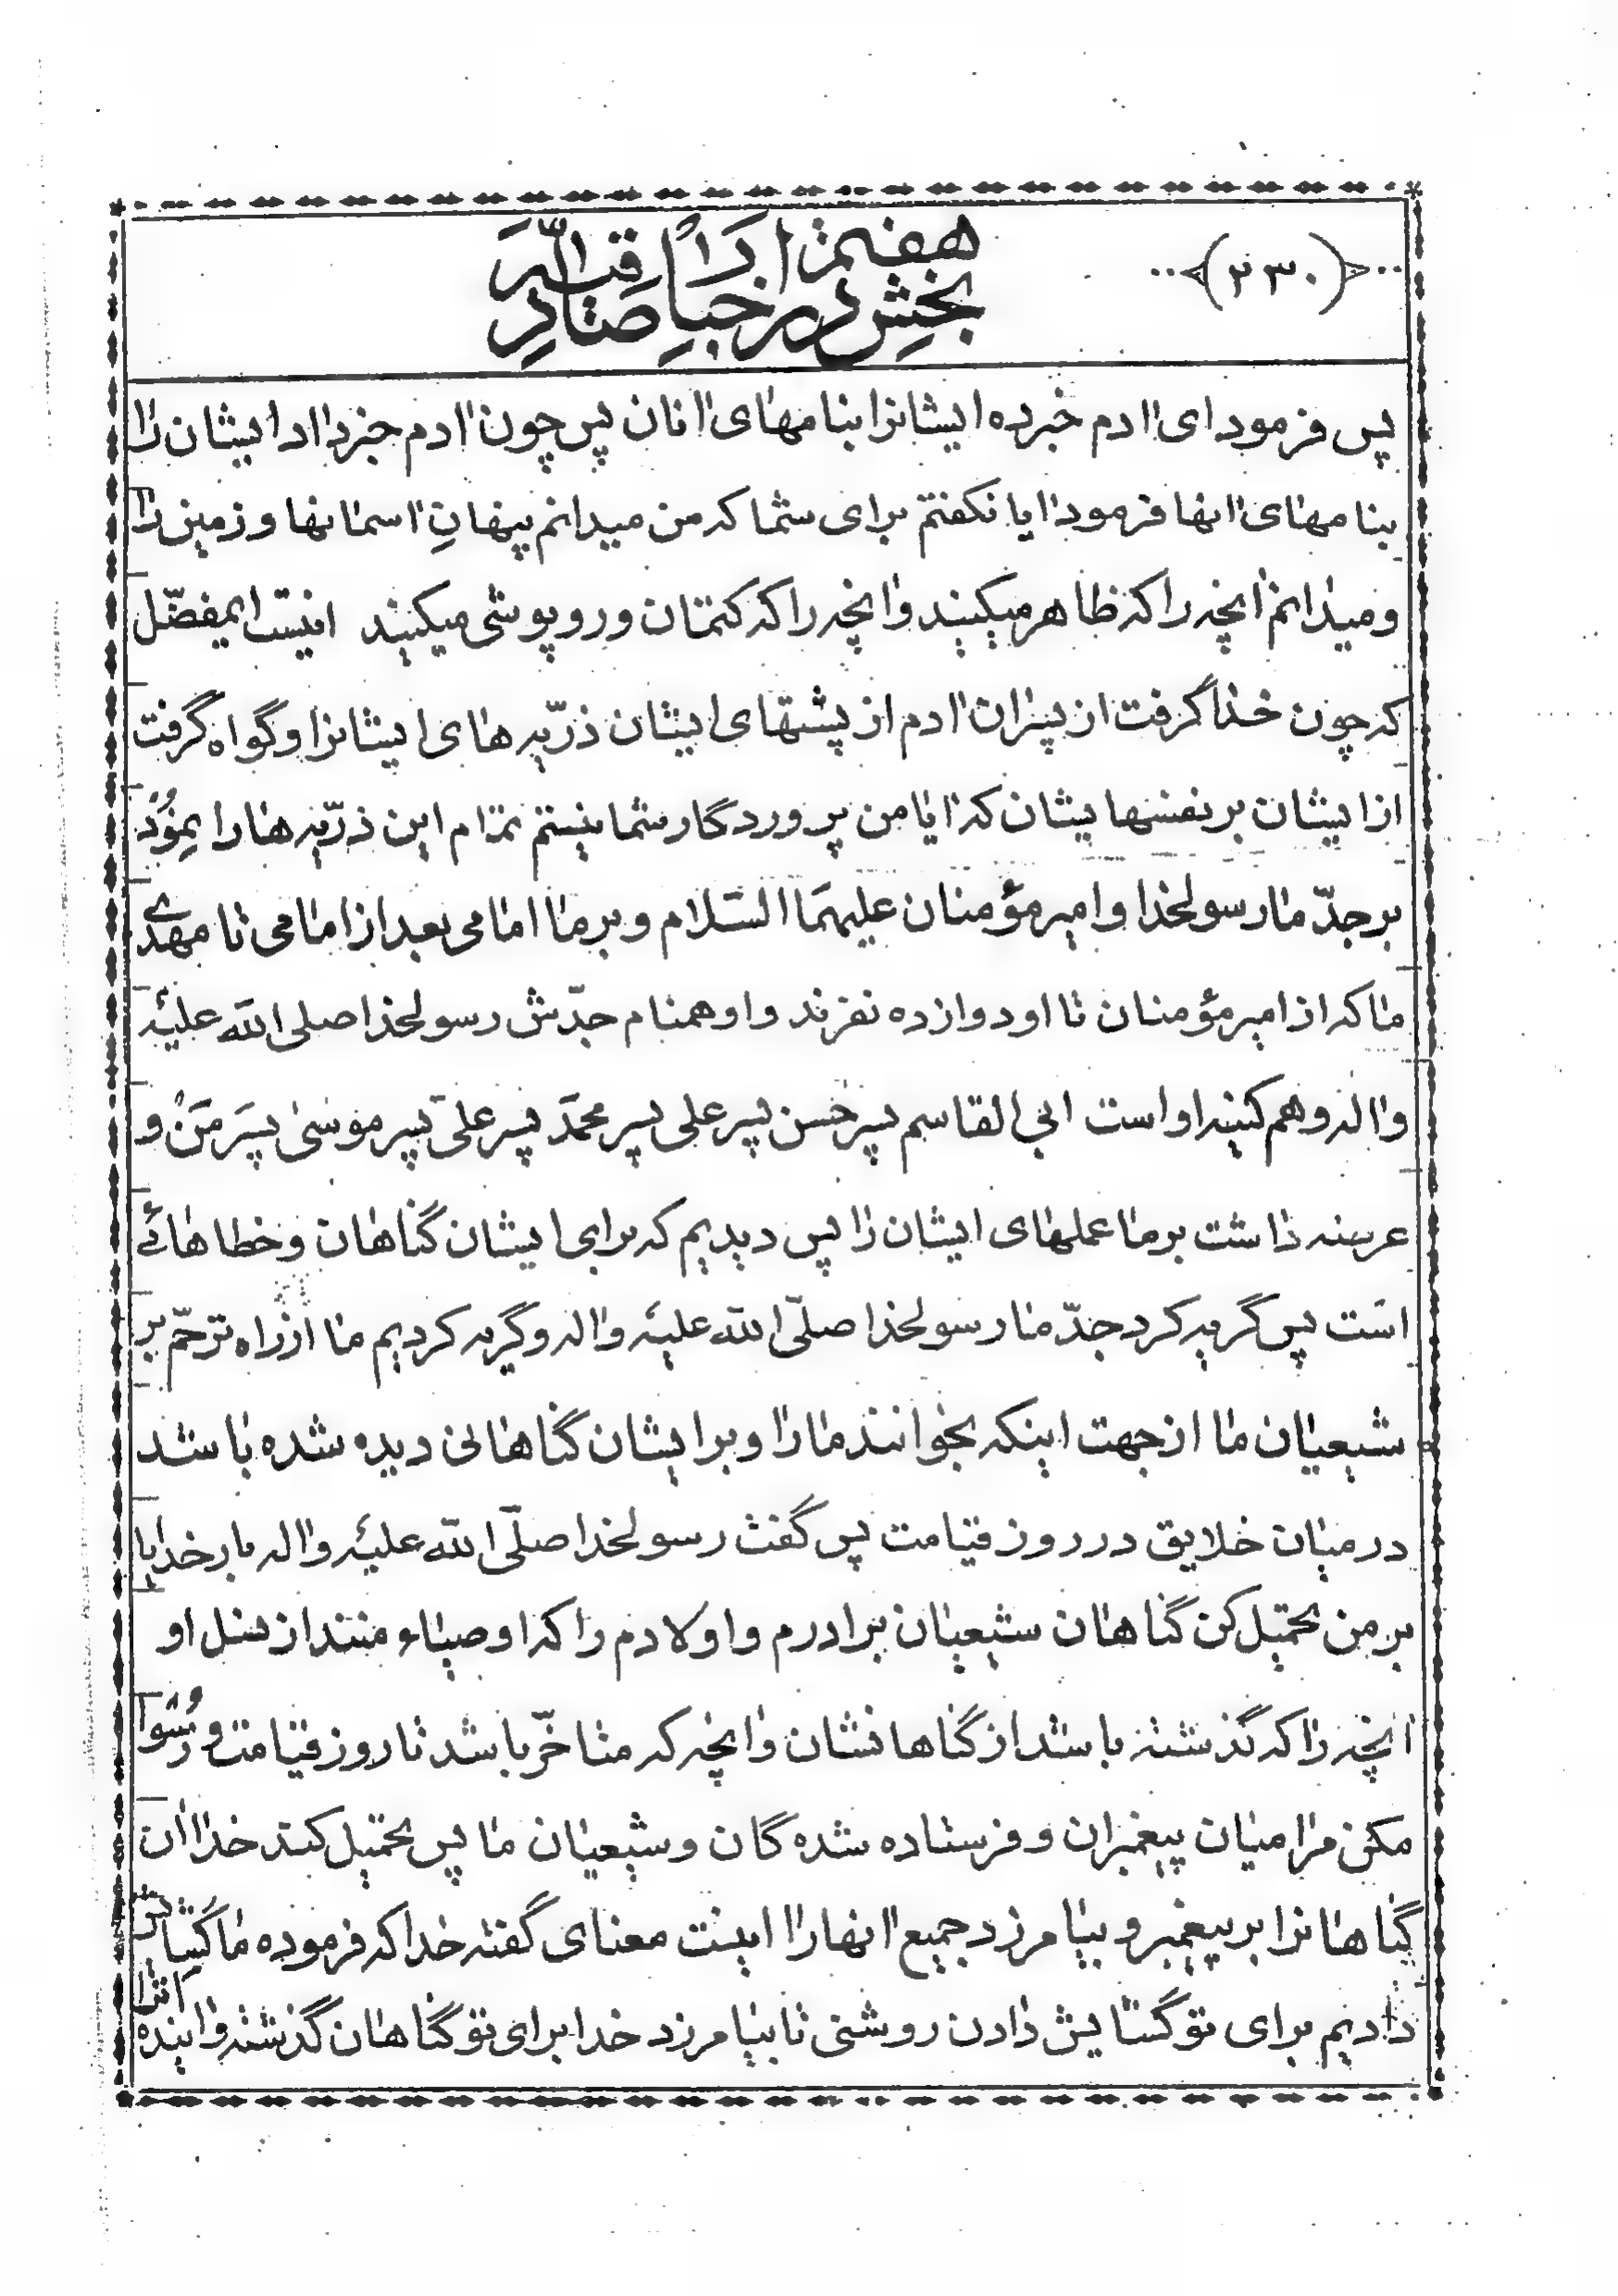 ﴿۲۳۰﴾
بخش هفتم در اخبار صادقیه
پس فرمود ای اادم خبرده ایشانرا بنامهای اانان پس چون اادم خبرداد ایشان را
بنامهای اانها فرمود اایا نگفتم برای شما که من میدانم پنهانِ اسمانها و زمین را
و میدانم انچه را که ظاهر میکنید و انچه را که کتمان و روپوشی میکنید اینست ایمفضّل
که چون خدا گرفت از پسران اادم از پشتهای ایشان ذرّیه های ایشانرا و گواه گرفت
از ایشان بر نفسهایشان که اایا من پروردگار شما نیستم تمام این ذرّیه ها را بِنمُود
بر جدّ ما رسولخدا و امیر مؤمنان علیهما السّلام و بر ما امامی بعد از امامی تا مهدی
ما که از امیر مؤمنان تا او دوازده نفرند و او همنام جدّش رسولخدا صلی الله علیه
و االه و هم کنیه او است ابی القاسم پسر حسن پسر علی پسر محمّد پسر علی پسر موسی پسَر مَنْ و
عرضه داشت بر ما عملهای ایشان را پس دیدیم که برای ایشان گناهان و خطاهائے
است پس گریه کرد جدّ ما رسولخدا صلّی الله علیه و االه و گریه کردیم ما از راه ترحّم بر
شیعیان ما از جهت اینکه بخوانند ما را و برایشان گناهانی دیده شده باشد
در میان خلایق در روز قیامت پس گفت رسولخدا صلّی الله علیه و االه بار خدایا
بر من تحمیل کن گناهان شیعیان برادرم و اولادم را که اوصیاء منند از نسل او
انچه را که گذشته باشد از گناهانشان و انچه که متاخّر باشد تا روز قیامت و رُسوا
مکن مرا میان پیغمبران و فرستاده شده گان و شیعیان ما پس تحمیل کند خدا اان
گناهانرا بر پیغمبر و بیامرزد جمیع اانها را اینست معنای گفته خدا که فرموده ما گشایش
دادیم برای تو گشایش دادن روشنی تا بیامرزد خدا برای تو گناهان گذشته و اینده ات را